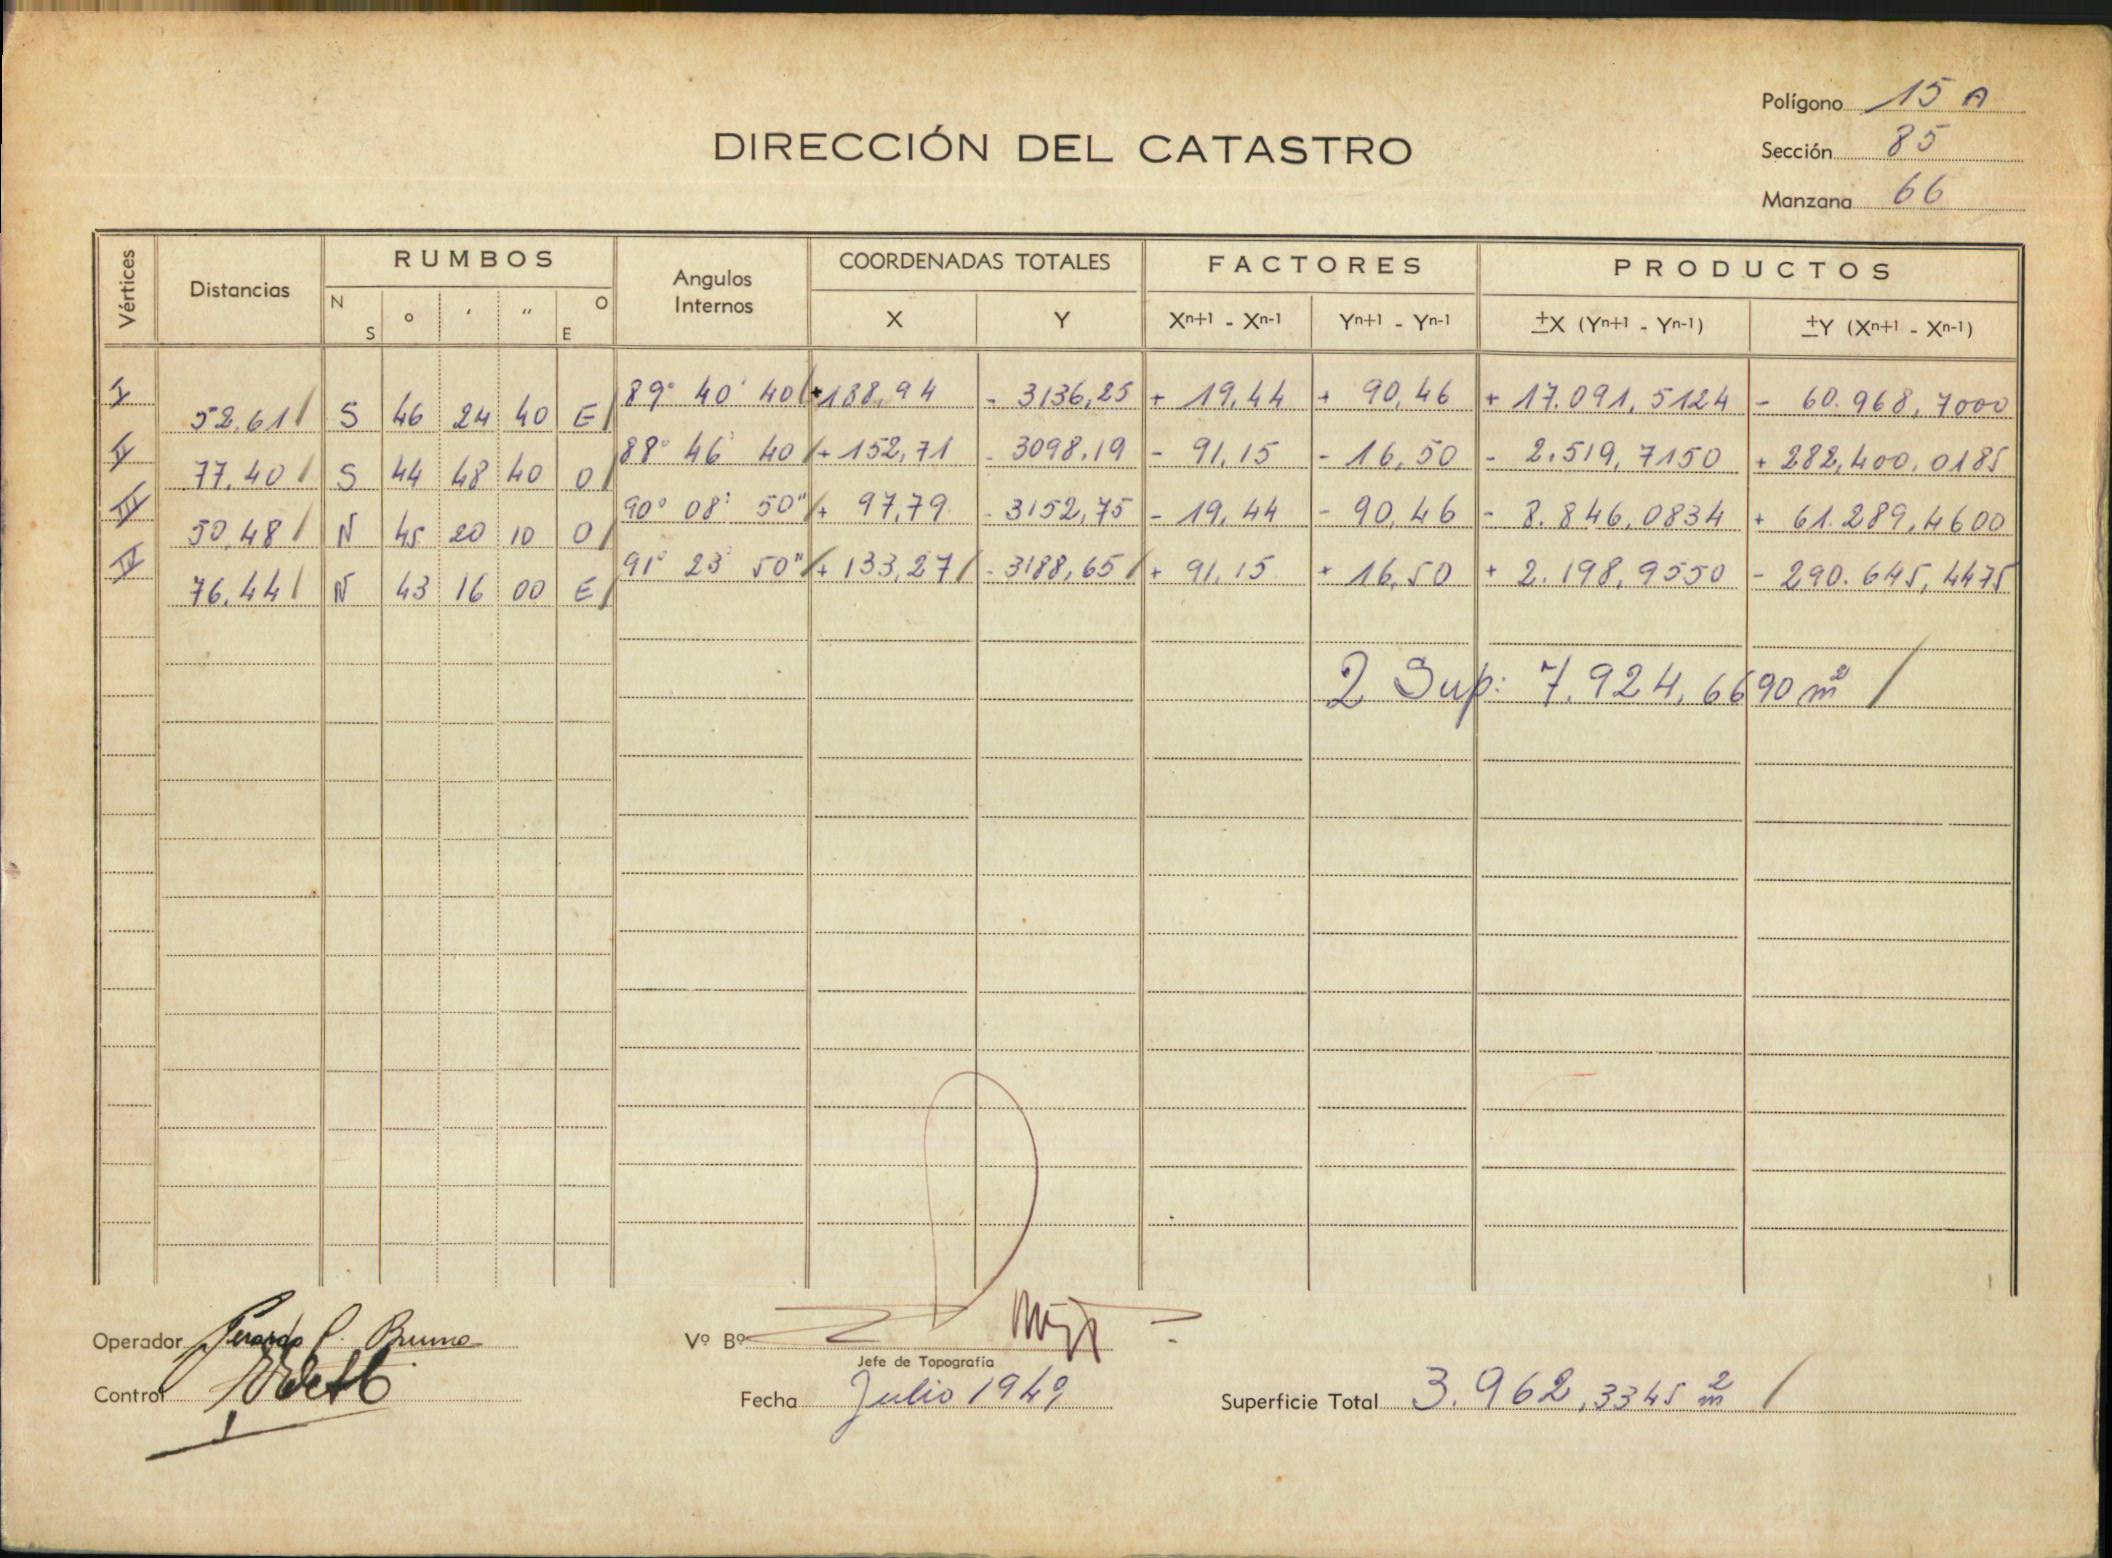 Polígono 15 A
DIRECCIÓN DEL CATASTRO
Sección 85
Manzana 66
Vértices Distancias RUMBOS Angulos Internos COORDENADAS TOTALES FACTORES PRODUCTOS
N S ° ' " O E X Y Xn+1 - Xn-1 Yn+1 - Yn-1 ±X (Yn+1 - Yn-1) ±Y (Xn+1 - Xn-1)
I 52.61 S 46 24 40 E 89° 40' 40 +188,94 - 3136,25 + 19,44 + 90,46 + 17.091,5124 - 60.968,7000
II 77.40 S 44 48 40 O 88° 46' 40 + 152,71 - 3098.19 - 91,15 - 16,50 - 2.519,7150 + 282,400,0185
III 50,48 N 45 20 10 O 90° 08' 50" + 97,79 - 3152,75 - 19,44 - 90,46 - 8.846,0834 + 61.289,4600
IV 76.44 N 43 16 00 E 91° 23' 50" + 133,27 - 3188,65 + 91,15 + 16,50 + 2.198,9550 - 290.645,4475
2 Sup: 7.924,6690 m²
Operador Gerardo P. Bruno
Vº Bº
Jefe de Topografía
Control
Fecha Julio 1949
Superficie Total 3.962,3345 m²